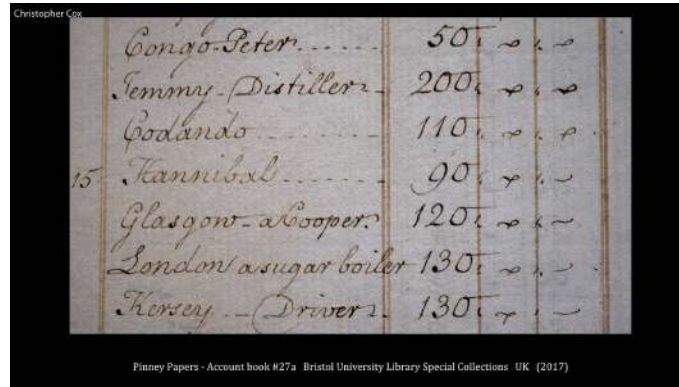 Christopher Cox
Congo-Peter...... 50
Jemmy-Distiller 200
Codando........ 110
15 Hannibal....... 90
Glasgow-a Cooper 120
London a sugar boiler 130
Kersey--Driver 130
Pinney Papers - Account book #27a Bristol University Library Special Collections UK (2017)